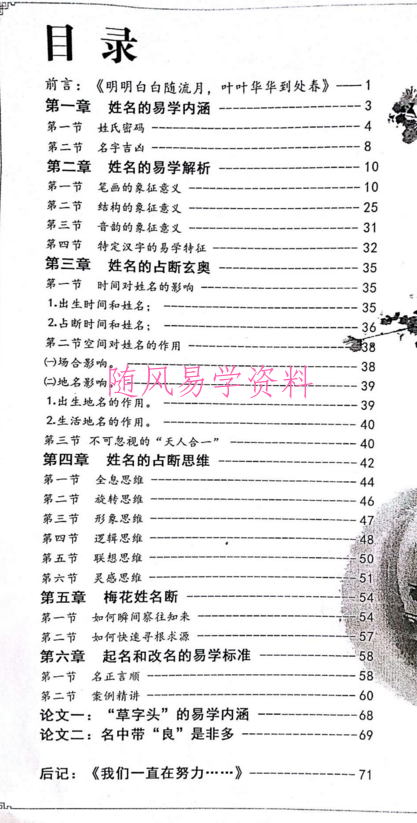 目 录
前言：《明明白白随流月，叶叶华华到处春》 1
第一章 姓名的易学内涵 3
第一节 姓氏密码 4
第二节 名字吉凶 8
第二章 姓名的易学解析 10
第一节 笔画的象征意义 10
第二节 结构的象征意义 25
第三节 音韵的象征意义 31
第四节 特定汉字的易学特征 32
第三章 姓名的占断玄奥 35
第一节 时间对姓名的影响 35
1.出生时间和姓名； 35
2.占断时间和姓名； 36
第二节空间对姓名的作用 38
㈠场合影响。 38
㈡地名影响。 39
随风易学资料
1.出生地名的作用。 39
2.生活地名的作用。 40
第三节 不可忽视的“天人合一” 40
第四章 姓名的占断思维 42
第一节 全息思维 44
第二节 旋转思维 46
第三节 形象思维 47
第四节 逻辑思维 48
第五节 联想思维 50
第六节 灵感思维 51
第五章 梅花姓名断 54
第一节 如何瞬间察往知来 54
第二节 如何快速寻根求源 57
第六章 起名和改名的易学标准 58
第一节 名正言顺 58
第二节 案例精讲 60
论文一：“草字头”的易学内涵 68
论文二：名中带“良”是非多 69
后记：《我们一直在努力……》 71